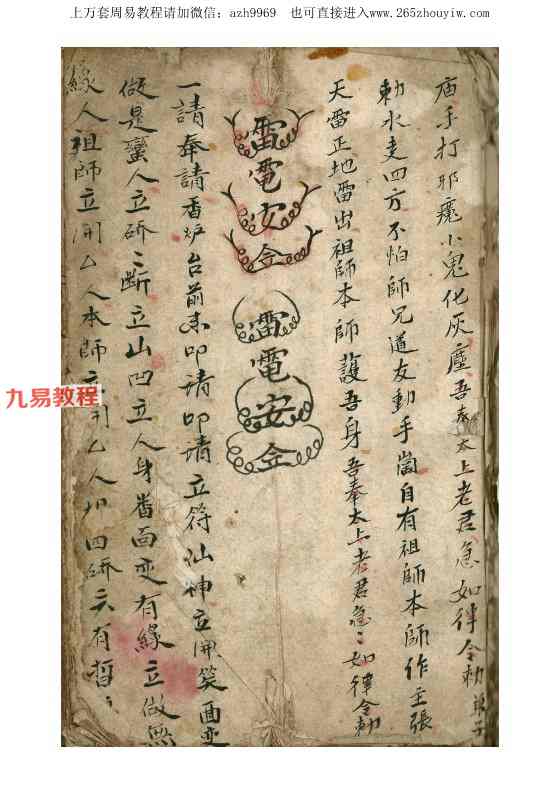 上万套周易教程请加微信：azh9969 也可直接进入www.265zhouyiw.com
庙手打邪魔小鬼化灰塵吾奉太上老君急如律令勅弟子
勅水走四方不怕師兄道友動手啚自有祖師本師作主張
天雷正地雷出祖師本師護吾身吾奉太上老君急〻如律令勅
雷電安令
雷電安令
一請奉請香炉台前来叩请叩请立符仙神立開笑面变
做是蛮人立斫〻断立山凹立人身畨面变有緣立做無
緣人祖師立開乙人本師立開乙人四斫云有
九易教程